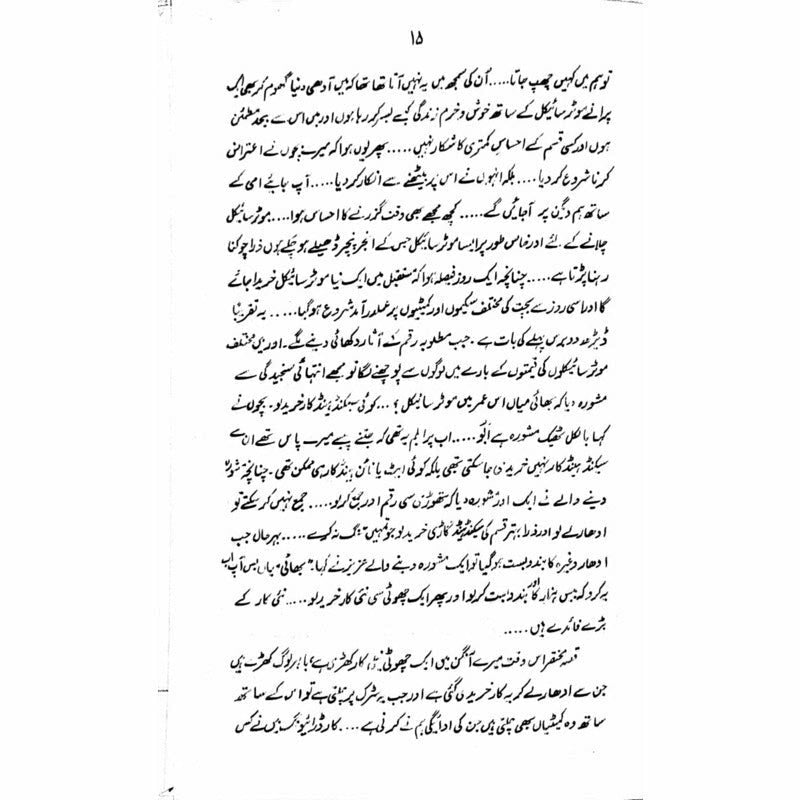 ۱۵
تو ہم میں کہیں چھپ جاتا..... اُن کی سمجھ میں یہ نہیں آتا تھا کہ میں آدھی دنیا گھوم کر بھی ایک
پرانے موٹر سائیکل کے ساتھ خوش و خرم زندگی کیسے بسر کر رہا ہوں اور میں اس سے بیحد مطمئن
ہوں اور کسی قسم کے احساسِ کمتری کا شکار نہیں..... پھر یوں ہوا کہ میرے بچوں نے اعتراض
کرنا شروع کر دیا.... بلکہ انہوں نے اس پر بیٹھنے سے انکار کر دیا..... آپ جائیے امی کے
ساتھ ہم ویگن پر آجائیں گے..... کچھ مجھے بھی وقت گزرنے کا احساس ہوا.... موٹر سائیکل
چلانے کے لئے اور خاص طور پر ایسا موٹر سائیکل جس کے انجر پنجر ڈھیلے ہو چکے ہوں ذرا چوکنا
رہنا پڑتا ہے..... چنانچہ ایک روز فیصلہ ہوا کہ مستقبل میں ایک نیا موٹر سائیکل خریدا جائے
گا اور اسی روز سے بچت کی مختلف سکیموں اور کمیٹیوں پر عملدرآمد شروع ہو گیا..... یہ تقریباً
ڈیڑھ دو برس پہلے کی بات ہے۔ جب مطلوبہ رقم کے آثار دکھائی دینے لگے۔ اور میں مختلف
موٹر سائیکلوں کی قیمتوں کے بارے میں لوگوں سے پوچھنے لگا تو مجھے انتہائی سنجیدگی سے
مشورہ دیا کہ بھائی میاں اس عمر میں موٹر سائیکل؟... کوئی سیکنڈ ہینڈ کار خرید لو۔ بچوں نے
کہا بالکل ٹھیک مشورہ ہے ابّو..... اب پرابلم یہ تھی کہ جتنے پیسے میرے پاس تھے ان سے
سیکنڈ ہینڈ کار نہیں خریدی جا سکتی تھی بلکہ کوئی ایٹ یا نائن ہینڈ کار ہی ممکن تھی۔ چنانچہ مشورہ
دینے والے نے ایک اور مشورہ دیا کہ تھوڑی سی رقم اور جمع کر لو..... جمع نہیں کر سکتے تو
ادھار لے لو اور ذرا بہتر قسم کی سیکنڈ ہینڈ گاڑی خرید لو جو تمہیں تنگ نہ کرے..... بہرحال جب
ادھار وغیرہ کا بندوبست ہو گیا تو ایک مشورہ دینے والے عزیز نے کہا۔ "بھائی میاں بس آپ اب
یہ کرو کہ بیس ہزار کا اور بندوبست کر لو اور پھر ایک چھوٹی سی نئی کار خرید لو..... نئی کار کے
بڑے فائدے ہیں.....
قصہ مختصر اس وقت میرے آنگن میں ایک چھوٹی کار کھڑی ہے، باہر لوگ کھڑے ہیں
جن سے ادھار لے کر یہ کار خریدی گئی ہے اور جب یہ سڑک پر چلتی ہے تو اس کے ساتھ
ساتھ وہ کمیٹیاں بھی چلتی ہیں جن کی ادائیگی ہم نے کرنی ہے.... کار ڈرائیونگ میں نے کس